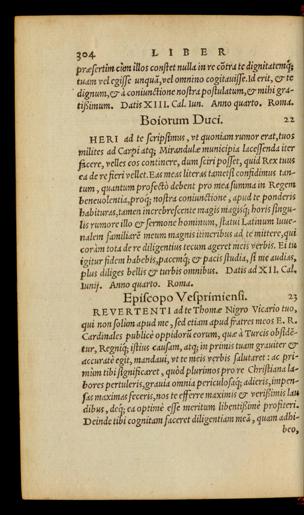 304 LIBER
præsertim cùm illos constet nulla in re cõtra te dignitatemq́;
tuam vel egisse unquã, vel omnino cogitavisse. Id erit, & te
dignum, & à coniunctione nostra postulatum, & mihi gra-
tissimum. Datis XIII. Cal. Iun. Anno quarto. Roma.
Boiorum Duci. 22
HERI ad te scripsimus, vt quoniam rumor erat, tuos
milites ad Carpi atq; Mirandulæ municipia lacessenda iter
facere, velles eos continere, dum sciri posset, quid Rex tuus
ea de re fieri vellet. Eas meas literas tametsi confidimus tan-
tum, quantum profectò debent pro mea summa in Regem
benevolentia, proq; nostra coniunctione, apud te ponderis
habituras, tamen increbrescente magis magisq; horis singu-
lis rumore illo & sermone hominum, statui Latinum Iuue-
nalem familiarē meum magnis itineribus ad te mittere, qui
coràm tota de re diligentius tecum ageret meis verbis. Ei tu
igitur fidem habebis, pacemq; & pacis studia, si me audias,
plus diliges bellis & turbis omnibus. Datis ad XII. Cal.
Iunij. Anno quarto. Roma.
Episcopo Vesprimiensi. 23
REVERTENTI ad te Thomæ Nigro Vicario tuo,
qui non solùm apud me, sed etiam apud fratres meos E. R.
Cardinales publicè oppidorũ eorum, quæ à Turcis obsidē-
tur, Regniq; istius causam, atq; in primis tuam grauiter &
accuratè egit, mandaui, vt te meis verbis salutaret: ac pri-
mùm tibi significaret, quòd plurimos pro re Christiana la-
bores pertuleris, grauia omnia periculosaq; adieris, impen-
sas maximas feceris, nos te efferre maximis & verißimis lau
dibus, deq́; ea optimè esse meritum libentißimè profiteri.
Deinde tibi cognitam faceret diligentiam meã, quam adhi-
beo,